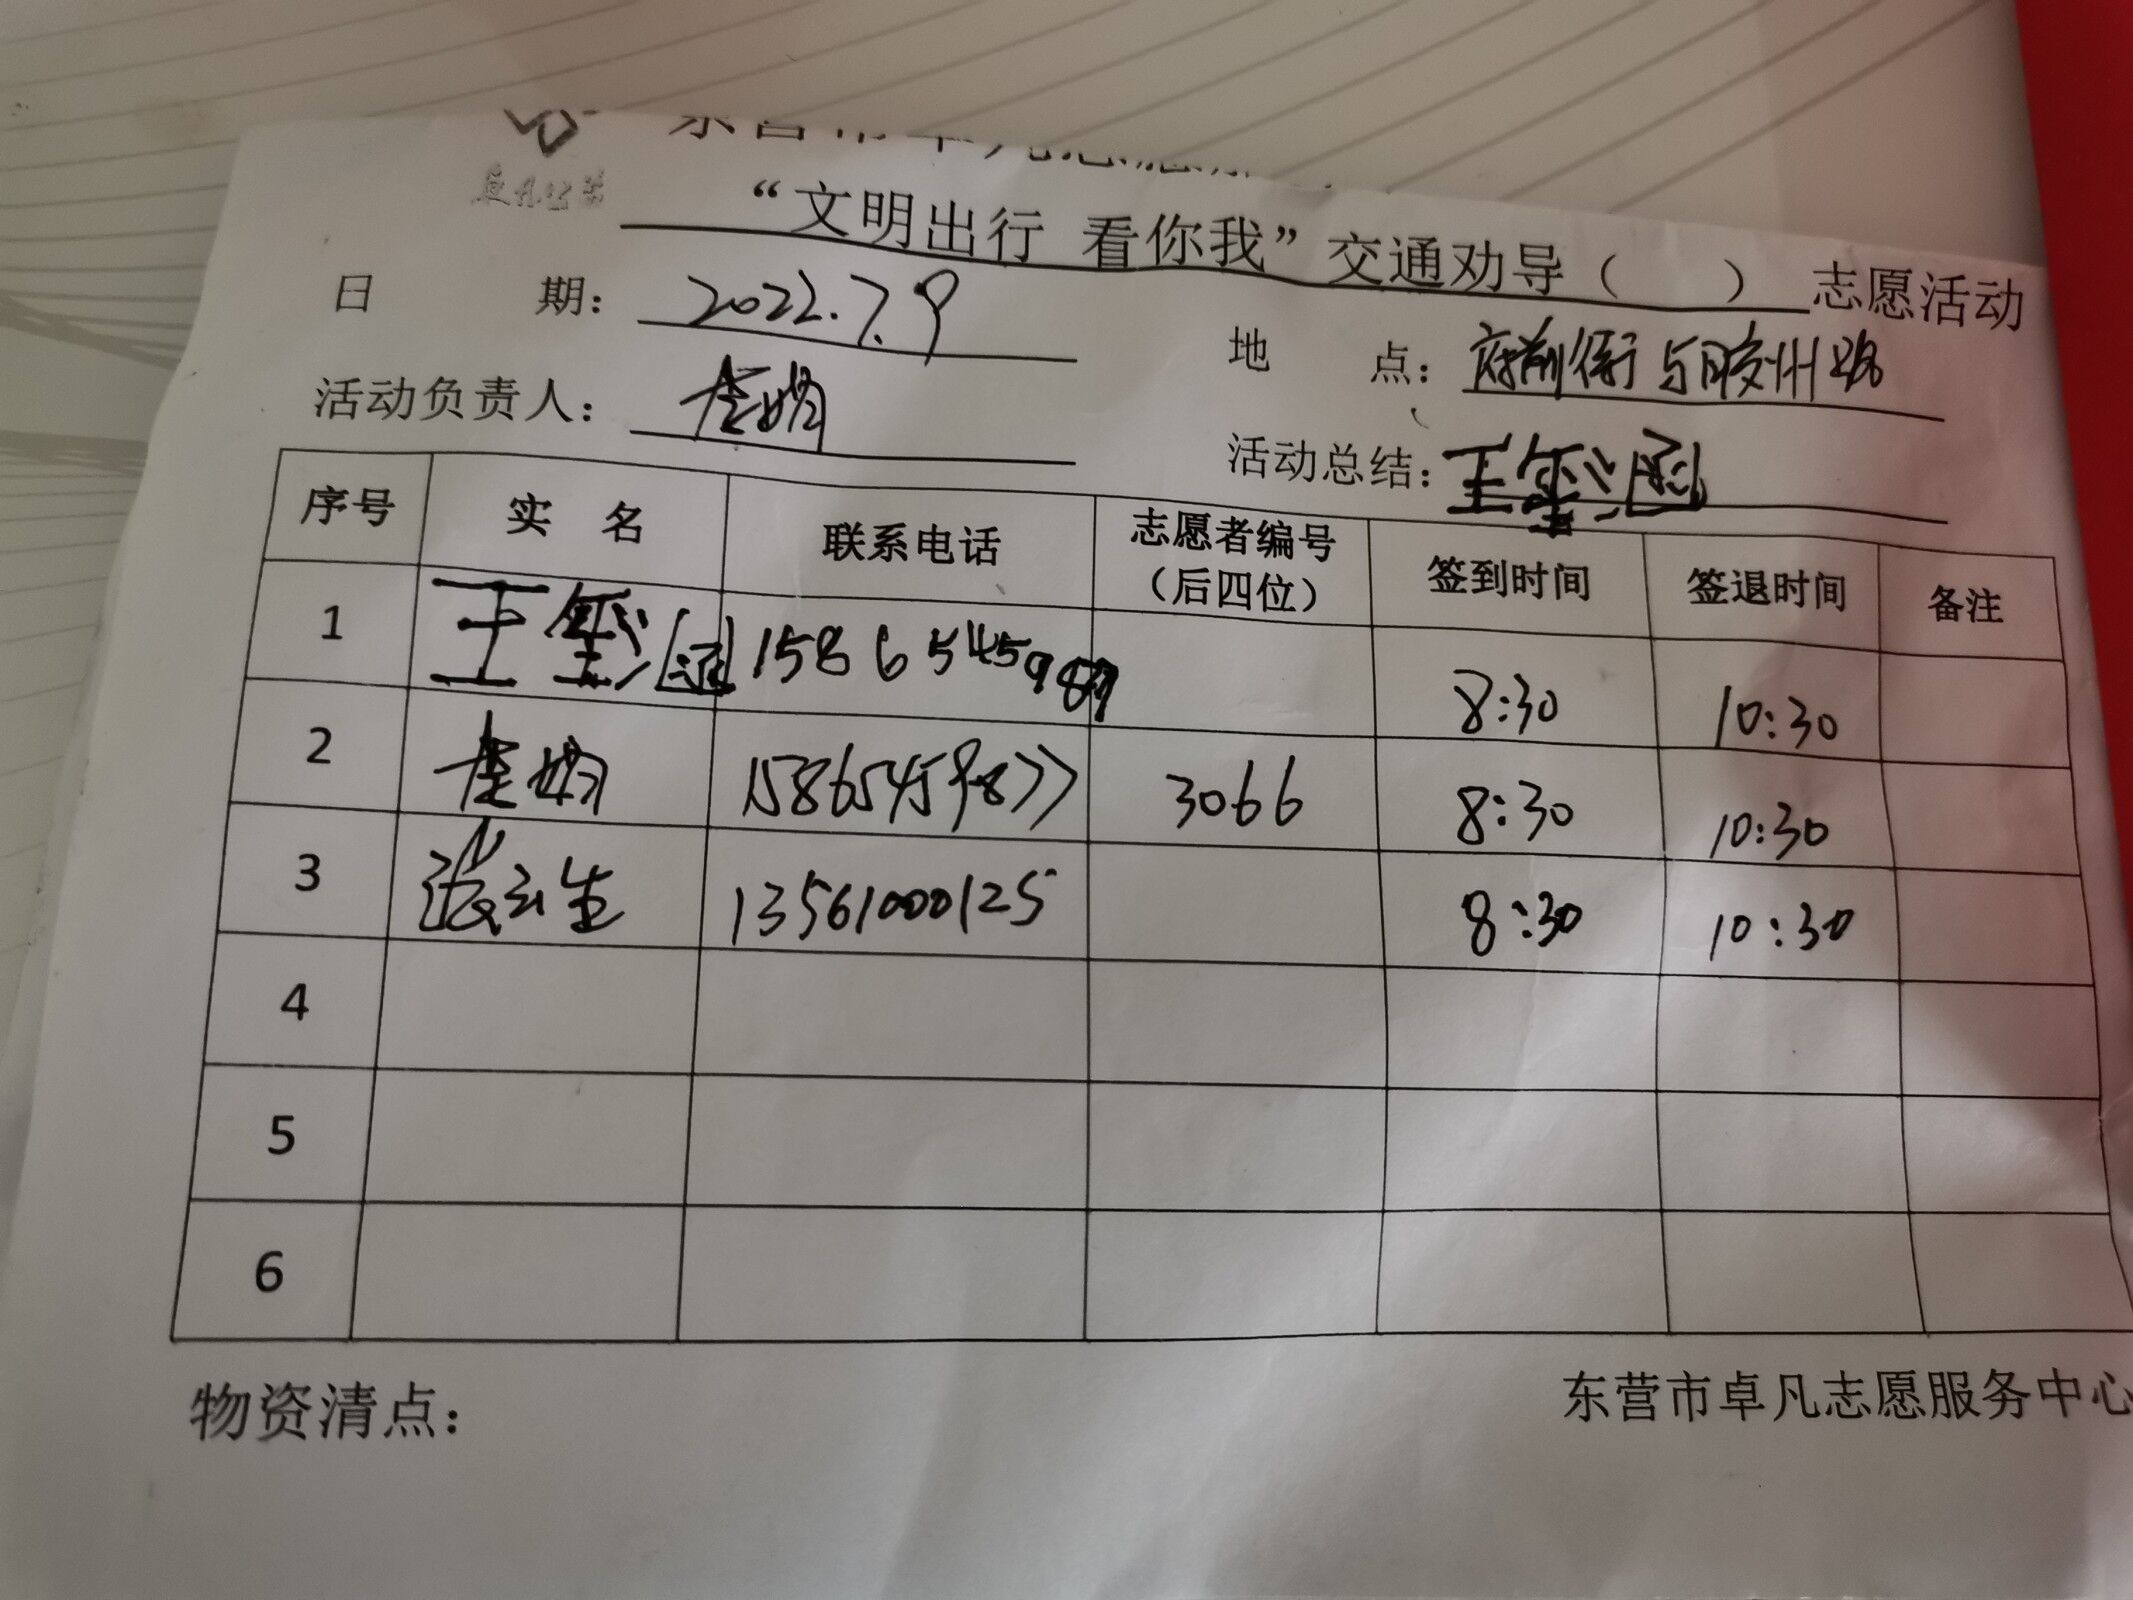 “文明出行 看你我”交通劝导（ ）志愿活动
日 期：2022.7.9 地 点：府前街与胶州路
活动负责人： 活动总结：王玺涵
序号 实 名 联系电话 志愿者编号（后四位） 签到时间 签退时间 备注
1 王玺涵 158654598 8:30 10:30
2 15865459877 3066 8:30 10:30
3 张云生 13561000125 8:30 10:30
4
5
6
物资清点： 东营市卓凡志愿服务中心